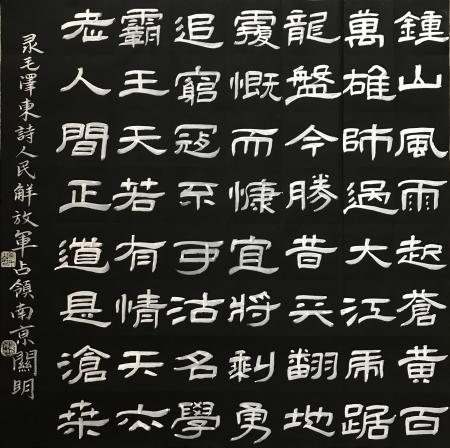 鍾山風雨起蒼黃百
萬雄師過大江虎踞
龍盤今勝昔天翻地
覆慨而慷宜將剩勇
追窮寇不可沽名學
霸王天若有情天亦
老人間正道是滄桑
录毛澤東詩人民解放軍占領南京關明